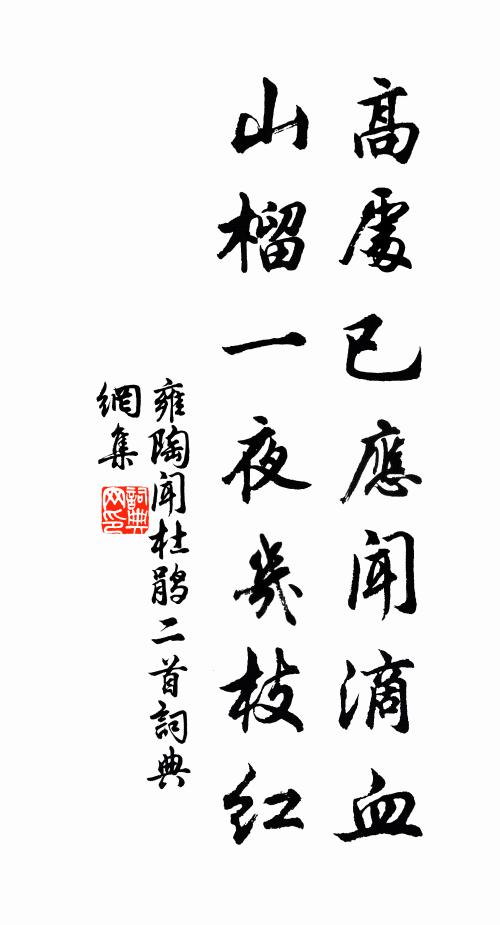 高處已應聞滴血
山榴一夜幾枝紅
雍陶聞杜鵑二首詞典
網集
詞典
网印